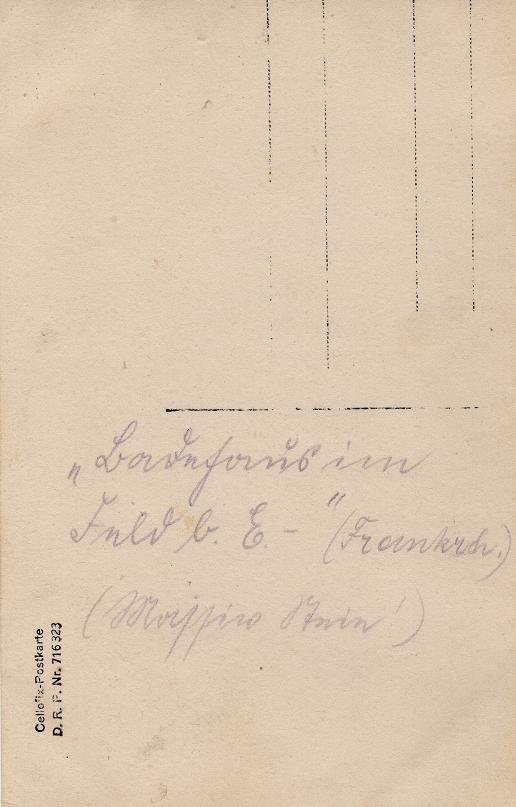 „Badehaus im
Feld b. E. - " (Frankrch.)
(Massiv Stein!)
Cellofix-Postkarte
D. R. P. Nr. 716 323